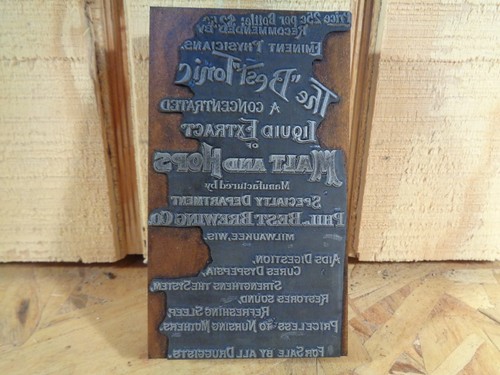 Price 25c per Bottle; $2.50
RECOMMENDED BY
EMINENT PHYSICIANS.
THE "BEST" TONIC
A CONCENTRATED
LIQUID EXTRACT
OF
MALT AND HOPS
Manufactured by
SPECIALTY DEPARTMENT
PHIL. BEST BREWING CO.
MILWAUKEE, WIS.
AIDS DIGESTION,
CURES DYSPEPSIA,
STRENGTHENS THE SYSTEM,
RESTORES SOUND,
REFRESHING SLEEP,
PRICELESS TO NURSING MOTHERS.
FOR SALE BY ALL DRUGGISTS.